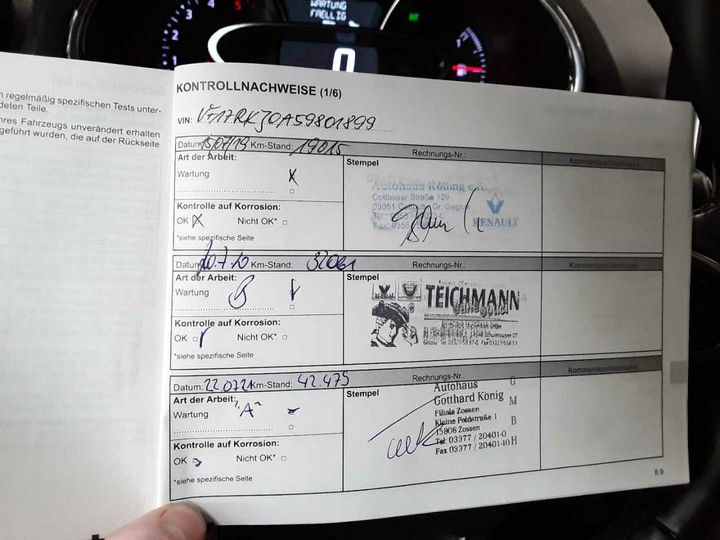 WARTUNG
FAELLIG
0
n regelmäßig spezifischen Tests unter-
deten Teile.
hres Fahrzeugs unverändert erhalten
geführt wurden, die auf der Rückseite
KONTROLLNACHWEISE (1/6)
VIN: VF17RKJ0A59801899
Datum: 15/07/19 Km-Stand: 19015 Rechnungs-Nr.: Kommentare/Werkmarke
Art der Arbeit: Stempel
Wartung X
Autohaus Kölling e.K.
Cottbuser Straße 129
RENAULT
Kontrolle auf Korrosion:
OK X Nicht OK* □
*siehe spezifische Seite
Datum: Km-Stand: 32061 Rechnungs-Nr.:
Art der Arbeit: Stempel
Wartung B
TEICHMANN
Kontrolle auf Korrosion:
OK Nicht OK* □
*siehe spezifische Seite
Datum: 22.07.21 Km-Stand: 42.475 Rechnungs-Nr.:
Art der Arbeit: Stempel
Wartung "A"
Autohaus G
Gotthard König M
Filiale Zossen B
Kleine Feldstraße 1 H
15806 Zossen
Tel: 03377 / 20401-0
Fax 03377 / 20401-10
Kontrolle auf Korrosion:
OK Nicht OK* □
*siehe spezifische Seite
6.9